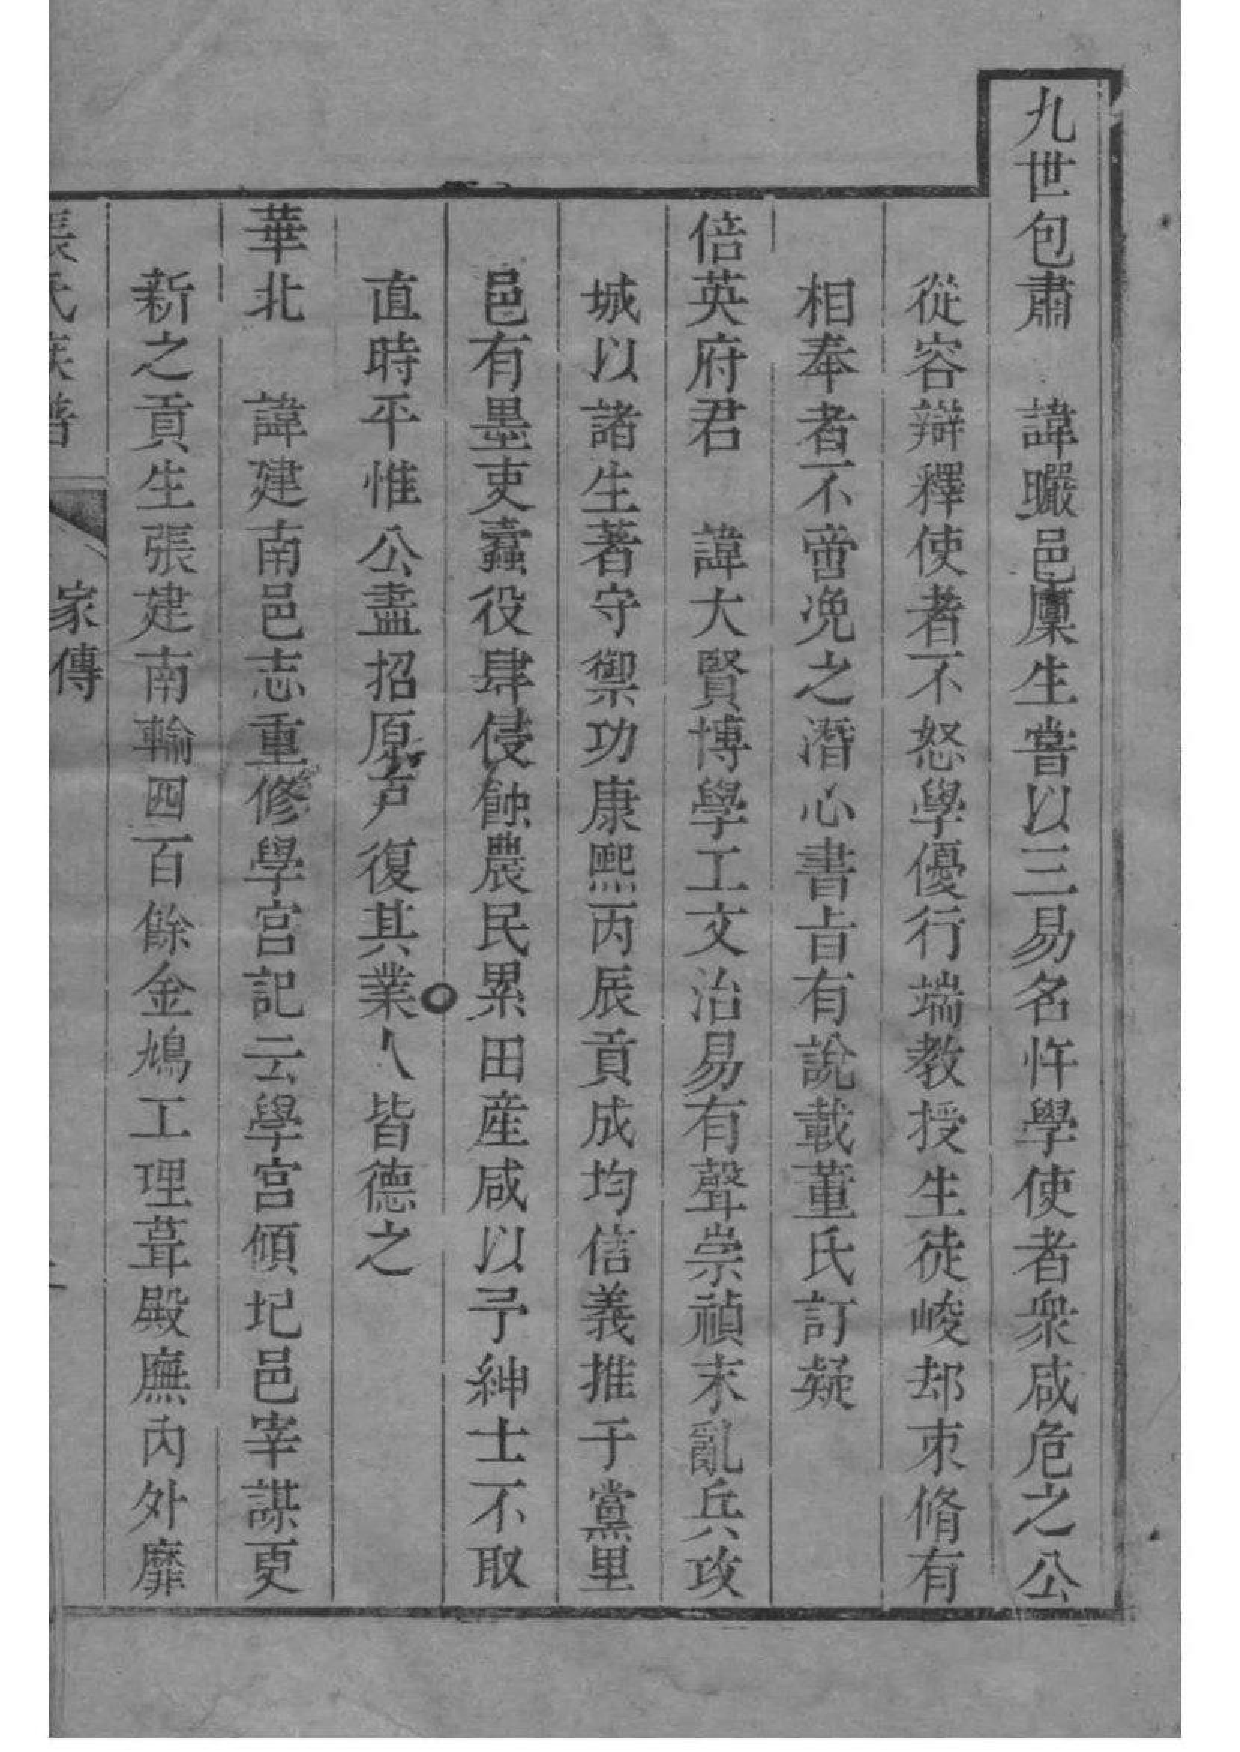 九世包肅　諱曮邑廩生嘗以三易名忤學使者衆咸危之公
從容辯釋使者不怒學優行端教授生徒峻却束脩有
相奉者不啻浼之潛心書旨有說載董氏訂疑
倍英府君　諱大賢博學工文治易有聲崇禎末亂兵攻
城以諸生著守禦功康熙丙辰貢成均信義推于黨里
邑有墨吏蠹役肆侵蝕農民累田産咸以予紳士不取
直時平惟公盡招原户復其業人皆德之
華北　諱建南邑志重修學宮記云學宮傾圮邑宰謀更
新之貢生張建南輸四百餘金鳩工理葺殿廡內外靡
張氏族譜　家傳